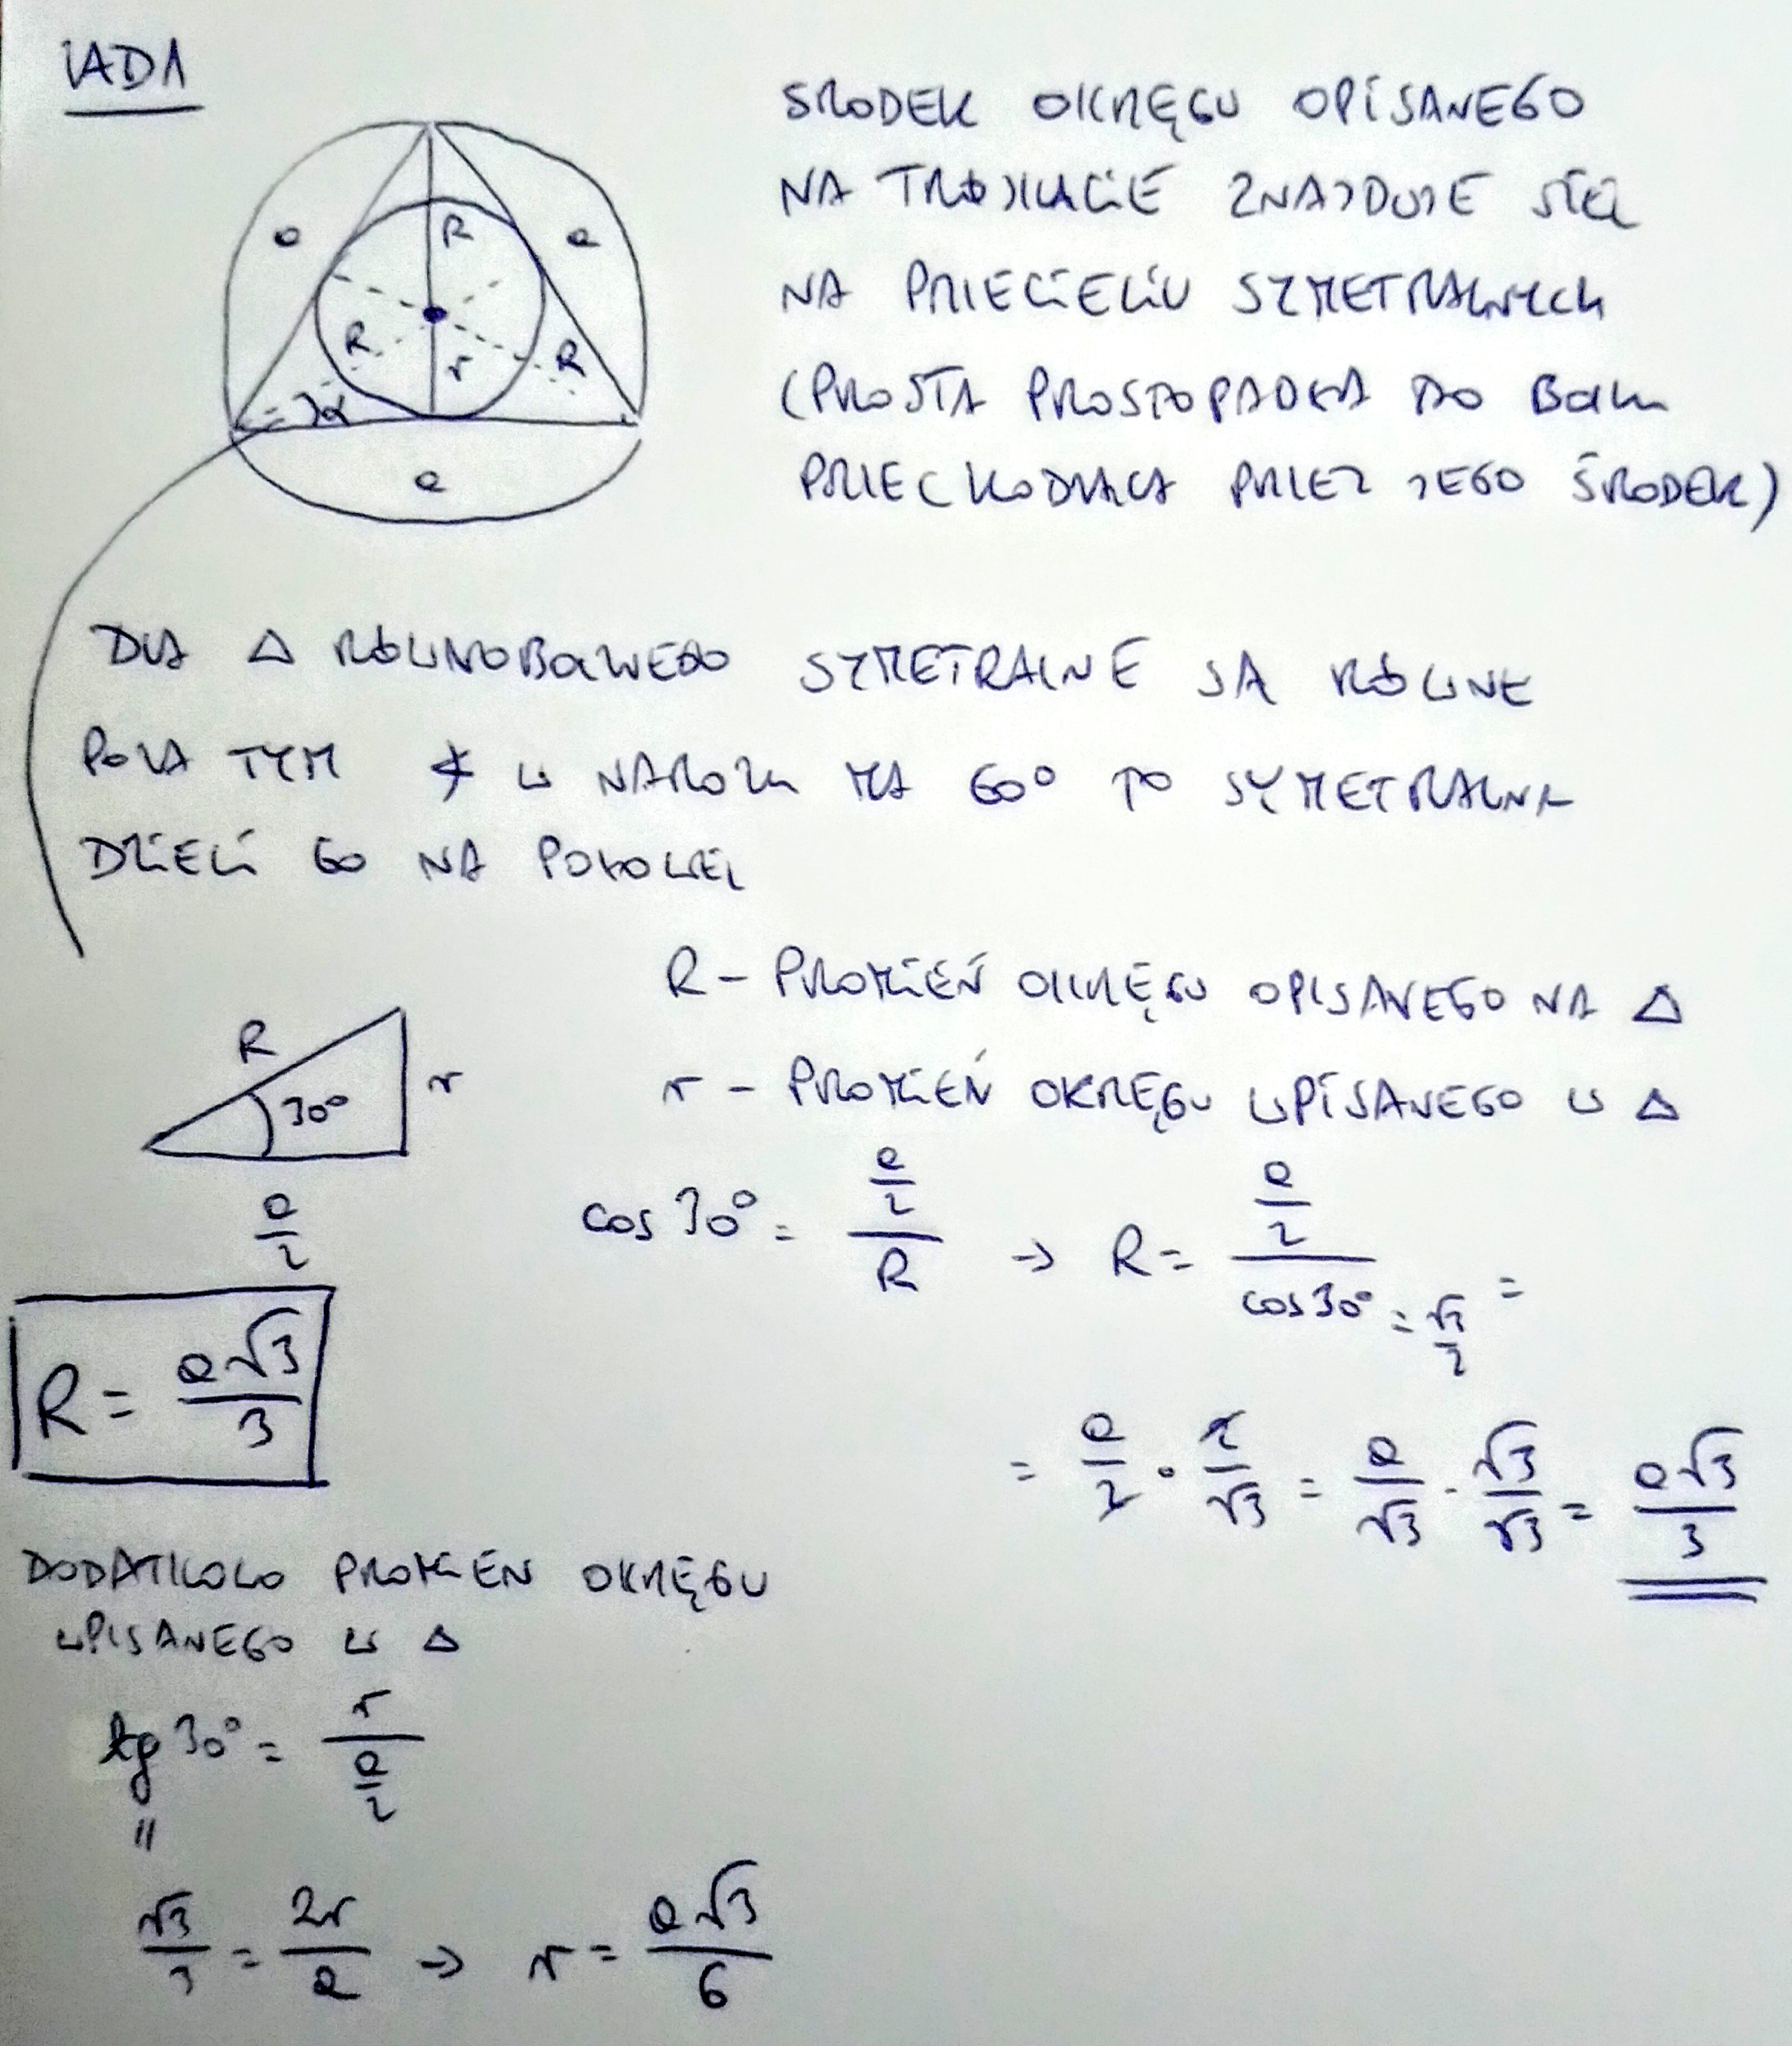 ZAD1
ŚRODEK OKRĘGU OPISANEGO
NA TRÓJKĄCIE ZNAJDUJE SIĘ
NA PRZECIĘCIU SYMETRALNYCH
(PROSTA PROSTOPADŁA DO BOKU
PRZECHODZĄCA PRZEZ JEGO ŚRODEK)
a R a
R r R
α
a
DLA △ RÓWNOBOCZNEGO SYMETRALNE SĄ RÓWNE
POZA TYM ∢ W NAROŻU MA 60° TO SYMETRALNA
DZIELI GO NA POŁOWĘ
R - PROMIEŃ OKRĘGU OPISANEGO NA △
r - PROMIEŃ OKRĘGU WPISANEGO W △
R 30° r
a/2
cos 30° = (a/2)/R → R = (a/2)/cos30° = √3/2 =
R = a√3/3
= a/2 · 2/√3 = a/√3 · √3/√3 = a√3/3
DODATKOWO PROMIEŃ OKRĘGU
WPISANEGO W △
tg 30° = r/(a/2)
"
√3/3 = 2r/a → r = a√3/6